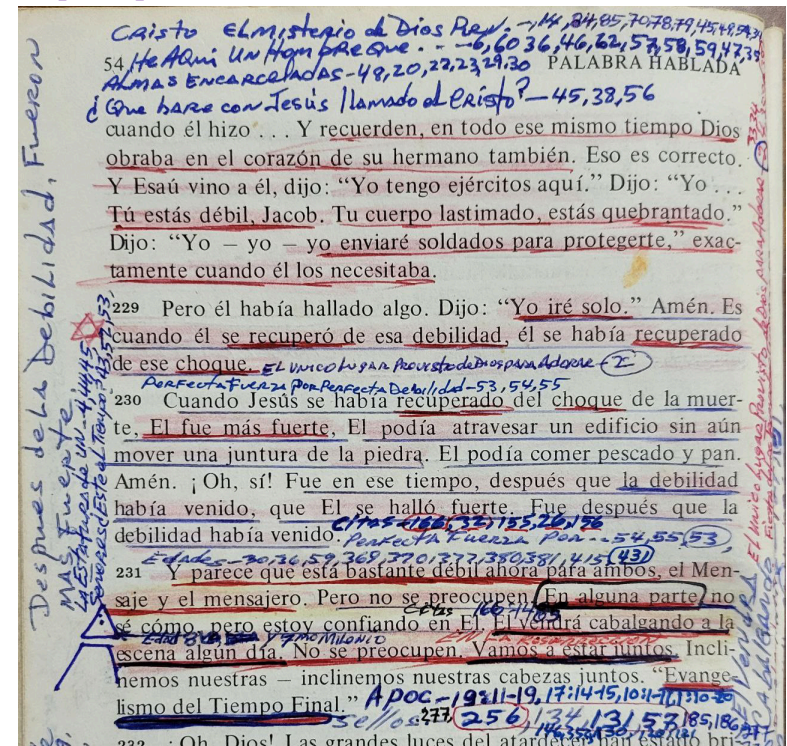 Cristo El misterio de Dios Rev.
54 He Aqui Un Hombre Que. - -6,60 36,46,62,57,58,59,47,39 PALABRA HABLADA
ALMAS ENCARCELADAS-48,20,22,23,29,30
¿Que hare con Jesús llamado el Cristo?-45,38,56
cuando él hizo . . . Y recuerden, en todo ese mismo tiempo Dios
obraba en el corazón de su hermano también. Eso es correcto.
Y Esaú vino a él, dijo: “Yo tengo ejércitos aquí.” Dijo: “Yo . . .
Tú estás débil, Jacob. Tu cuerpo lastimado, estás quebrantado.”
Dijo: “Yo – yo – yo enviaré soldados para protegerte,” exac-
tamente cuando él los necesitaba.
229 Pero él había hallado algo. Dijo: “Yo iré solo.” Amén. Es
cuando él se recuperó de esa debilidad, él se había recuperado
de ese choque. EL UNICO LUGAR Provisto de Dios PARA Adorar
PerFecta Fuerza Por PerFecta Debilidad-53,54,55
230 Cuando Jesús se había recuperado del choque de la muer-
te, El fue más fuerte, El podía atravesar un edificio sin aún
mover una juntura de la piedra. El podía comer pescado y pan.
Amén. ¡Oh, sí! Fue en ese tiempo, después que la debilidad
había venido, que El se halló fuerte. Fue después que la
debilidad había venido. Citas-166,32,155,26,156
Perfecta Fuerza Por--54,55,53
Edades-30,36,59,369,370,377,380,381,415,431
231 Y parece que está bastante débil ahora para ambos, el Men-
saje y el mensajero. Pero no se preocupen. En alguna parte, no
Citas
sé cómo, pero estoy confiando en El. El vendrá cabalgando a la
Y 7MO MILENIO
escena algún día. No se preocupen. Vamos a estar juntos. Incli-
nemos nuestras – inclinemos nuestras cabezas juntos. “Evange-
lismo del Tiempo Final.” Apoc-19:11-19, 17:14-15,
Sellos 277, 256, 134, 13, 57, 185, 186
232 ¡Oh, Dios! Las grandes luces del atardecer han estado bri-
Despues de la Debilidad, Fueron
MAS Fuerte
La Estatura de un -4,44,45
Señores Es Este el Tiempo?
El Unico Lugar Provisto de Dios PARA Adorar
El Vendra
CABALGANDO